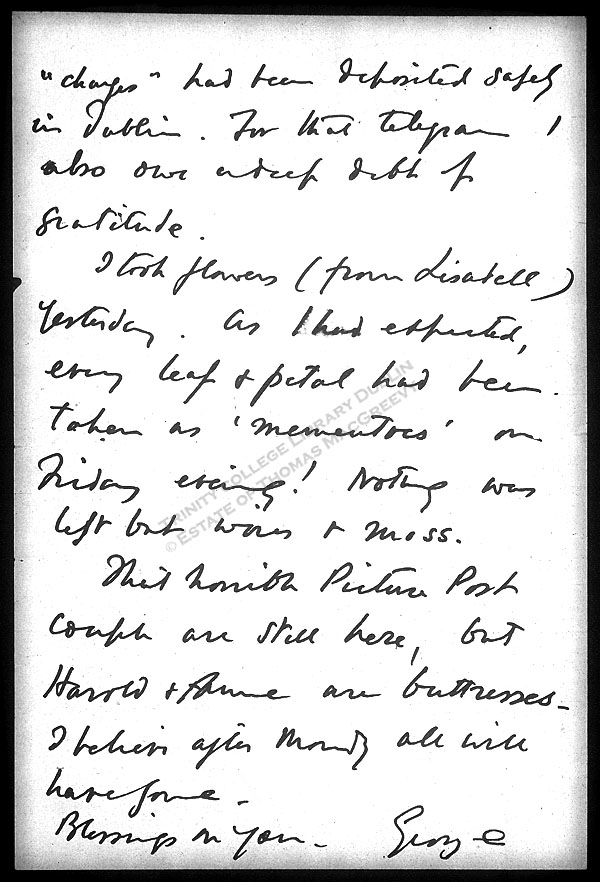 "charges" had been deposited safely
in Dublin. For that telegram I
also owe a deep debt of
gratitude.
I took flowers (from Lissadell)
yesterday. As I had expected,
every leaf & petal had been
taken as 'mementoes' on
Friday evening! Nothing was
left but wires & moss.
That horrible Picture Post
couple are still here, but
Harold & Anne are buttresses -
I believe after Monday all will
have gone -
Blessings on you - George
TRINITY COLLEGE LIBRARY DUBLIN
© ESTATE OF THOMAS MACGREEVY